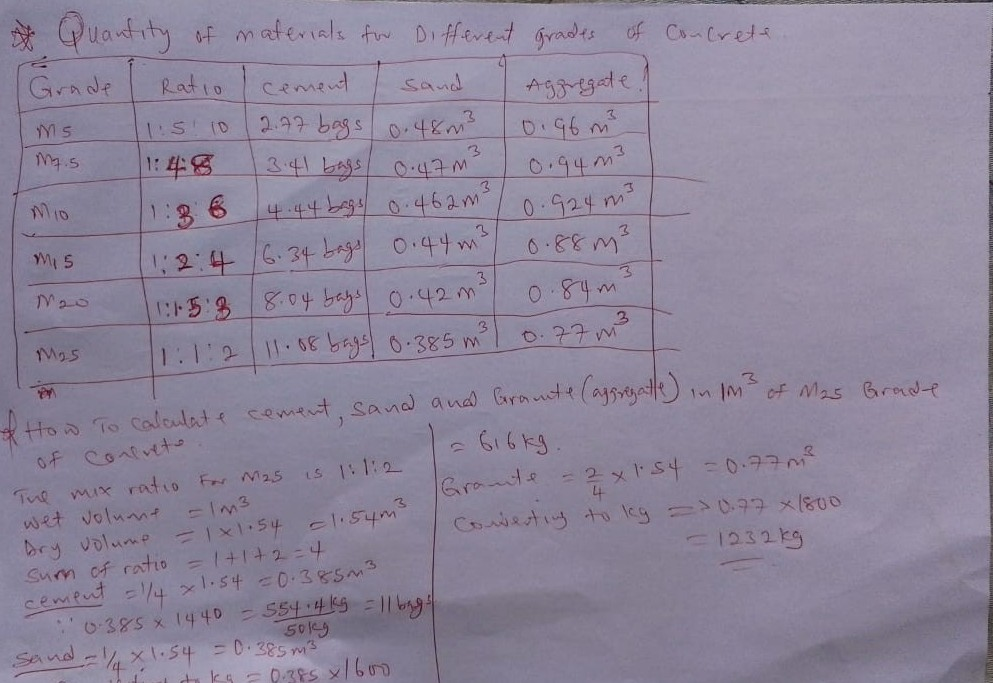 * Quantity of materials for Different grades of Concrete
Grade Ratio cement sand Aggregate
M5 1:5:10 2.77 bags 0.48m³ 0.96 m³
M7.5 1:4:8 3.41 bags 0.47m³ 0.94m³
M10 1:3:6 4.44 bags 0.462m³ 0.924m³
M15 1:2:4 6.34 bags 0.44m³ 0.88m³
M20 1:1.5:3 8.04 bags 0.42m³ 0.84m³
M25 1:1:2 11.08 bags 0.385m³ 0.77m³
* How To calculate cement, sand and Granite (aggregate) in 1m³ of M25 Grade
of Concrete
The mix ratio for M25 is 1:1:2
wet volume = 1m³
Dry volume = 1 x 1.54 = 1.54m³
Sum of ratio = 1+1+2 = 4
cement = 1/4 x 1.54 = 0.385m³
∵ 0.385 x 1440 = 554.4kg/50kg = 11bags
Sand = 1/4 x 1.54 = 0.385m³
to kg = 0.385 x 1600
= 616kg.
Granite = 2/4 x 1.54 = 0.77m³
Converting to kg => 0.77 x 1800
= 1232kg